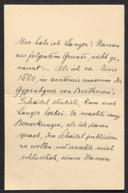 Nur habe ich Langer's Namen
aus folgendem Grunde, nicht ge-
nannt: Als ich im Jahre
1880, im anatomischen museum den
Gypsabguss von Beethoven's
Schädel studirte, kam auch
Langer herbei. Er machte einige
Bemerkungen, als ich davon
sprach, den Schädel publiciren
zu wollen und
schliesslich, seinen Namen